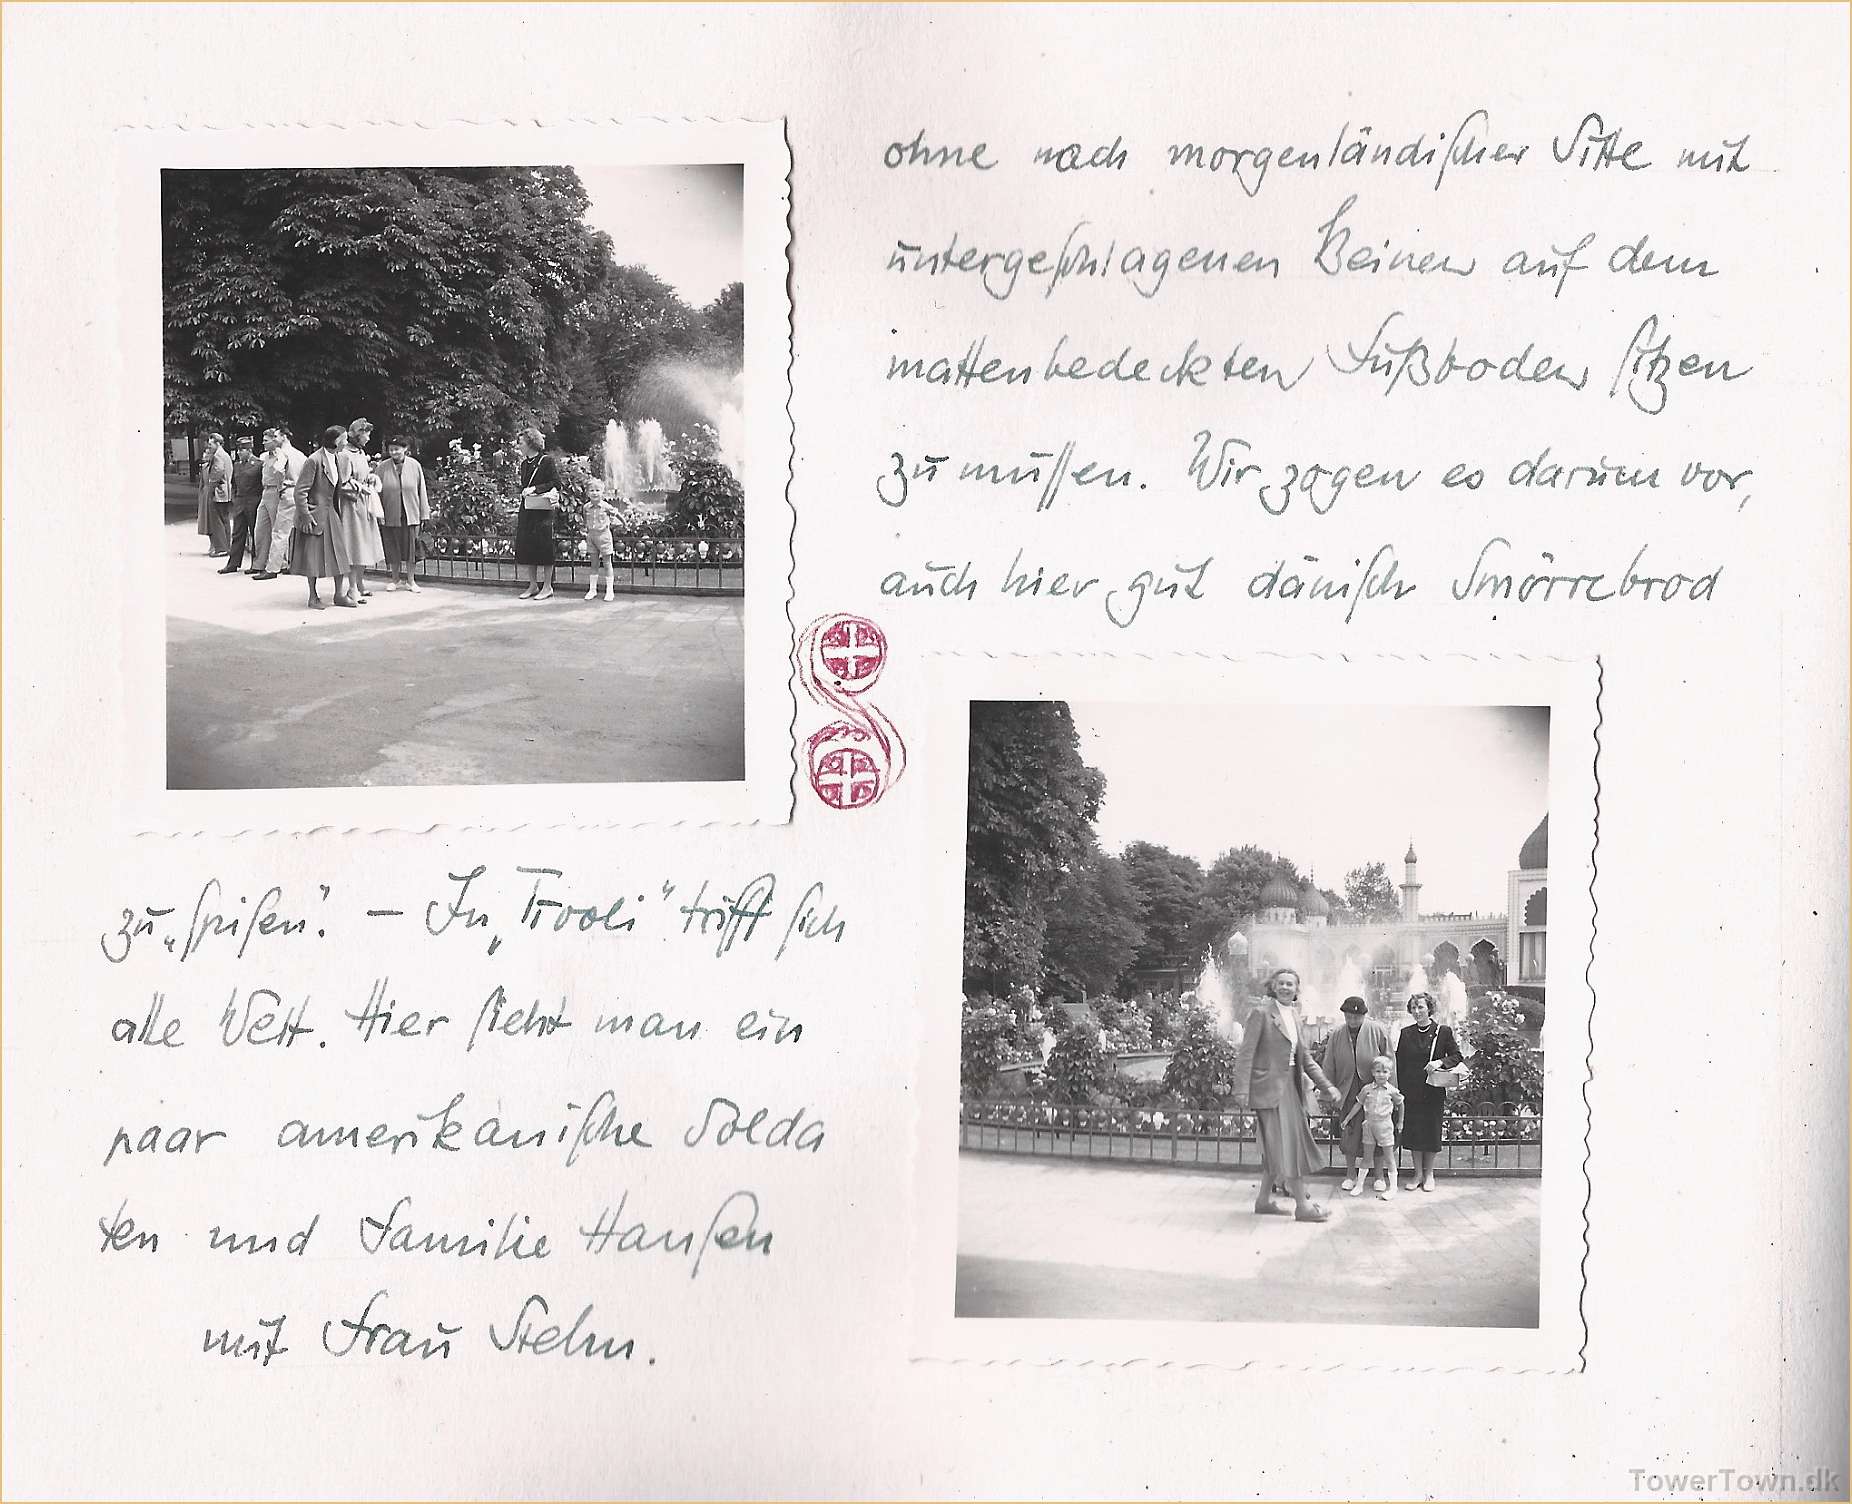 ohne nach morgenländischer Sitte mit
untergeschlagenen Beinen auf dem
mattenbedeckten Fußboden sitzen
zu müssen. Wir zogen es darum vor,
auch hier gut dänisch Smörrebrod
zu „spisen“. – In „Tivoli“ trifft sich
alle Welt. Hier sieht man ein
paar amerikanische Solda
ten und Familie Hansen
mit Frau Stehn.
TowerTown.dk